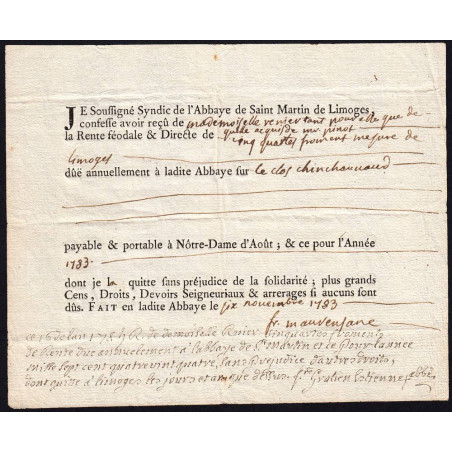 JE Soussigné Syndic de l'Abbaye de Saint Martin de Limoges,
confesse avoir reçu de mademoiselle venier tant pour elle que de
la Rente féodale & Directe de cinq quartes froment mesure de
quelle acquis de mr pinot
limoges
dûë annuellement à ladite Abbaye sur le clos chinchauvaud
payable & portable à Nôtre-Dame d'Août; & ce pour l'Année
1783
dont je la quitte sans préjudice de la solidarité; plus grands
Cens, Droits, Devoirs Seigneuriaux & arrerages si aucuns sont
dûs. FAIT en ladite Abbaye le six novembre 1783
fr. mauvensane
de Rente due annuellement a labbaye de St Martin et ce pour lannée
mille sept cent quatrevint quatre, sans prejudice dautres droits,
dont quitte a limoges les jours et an que dessus